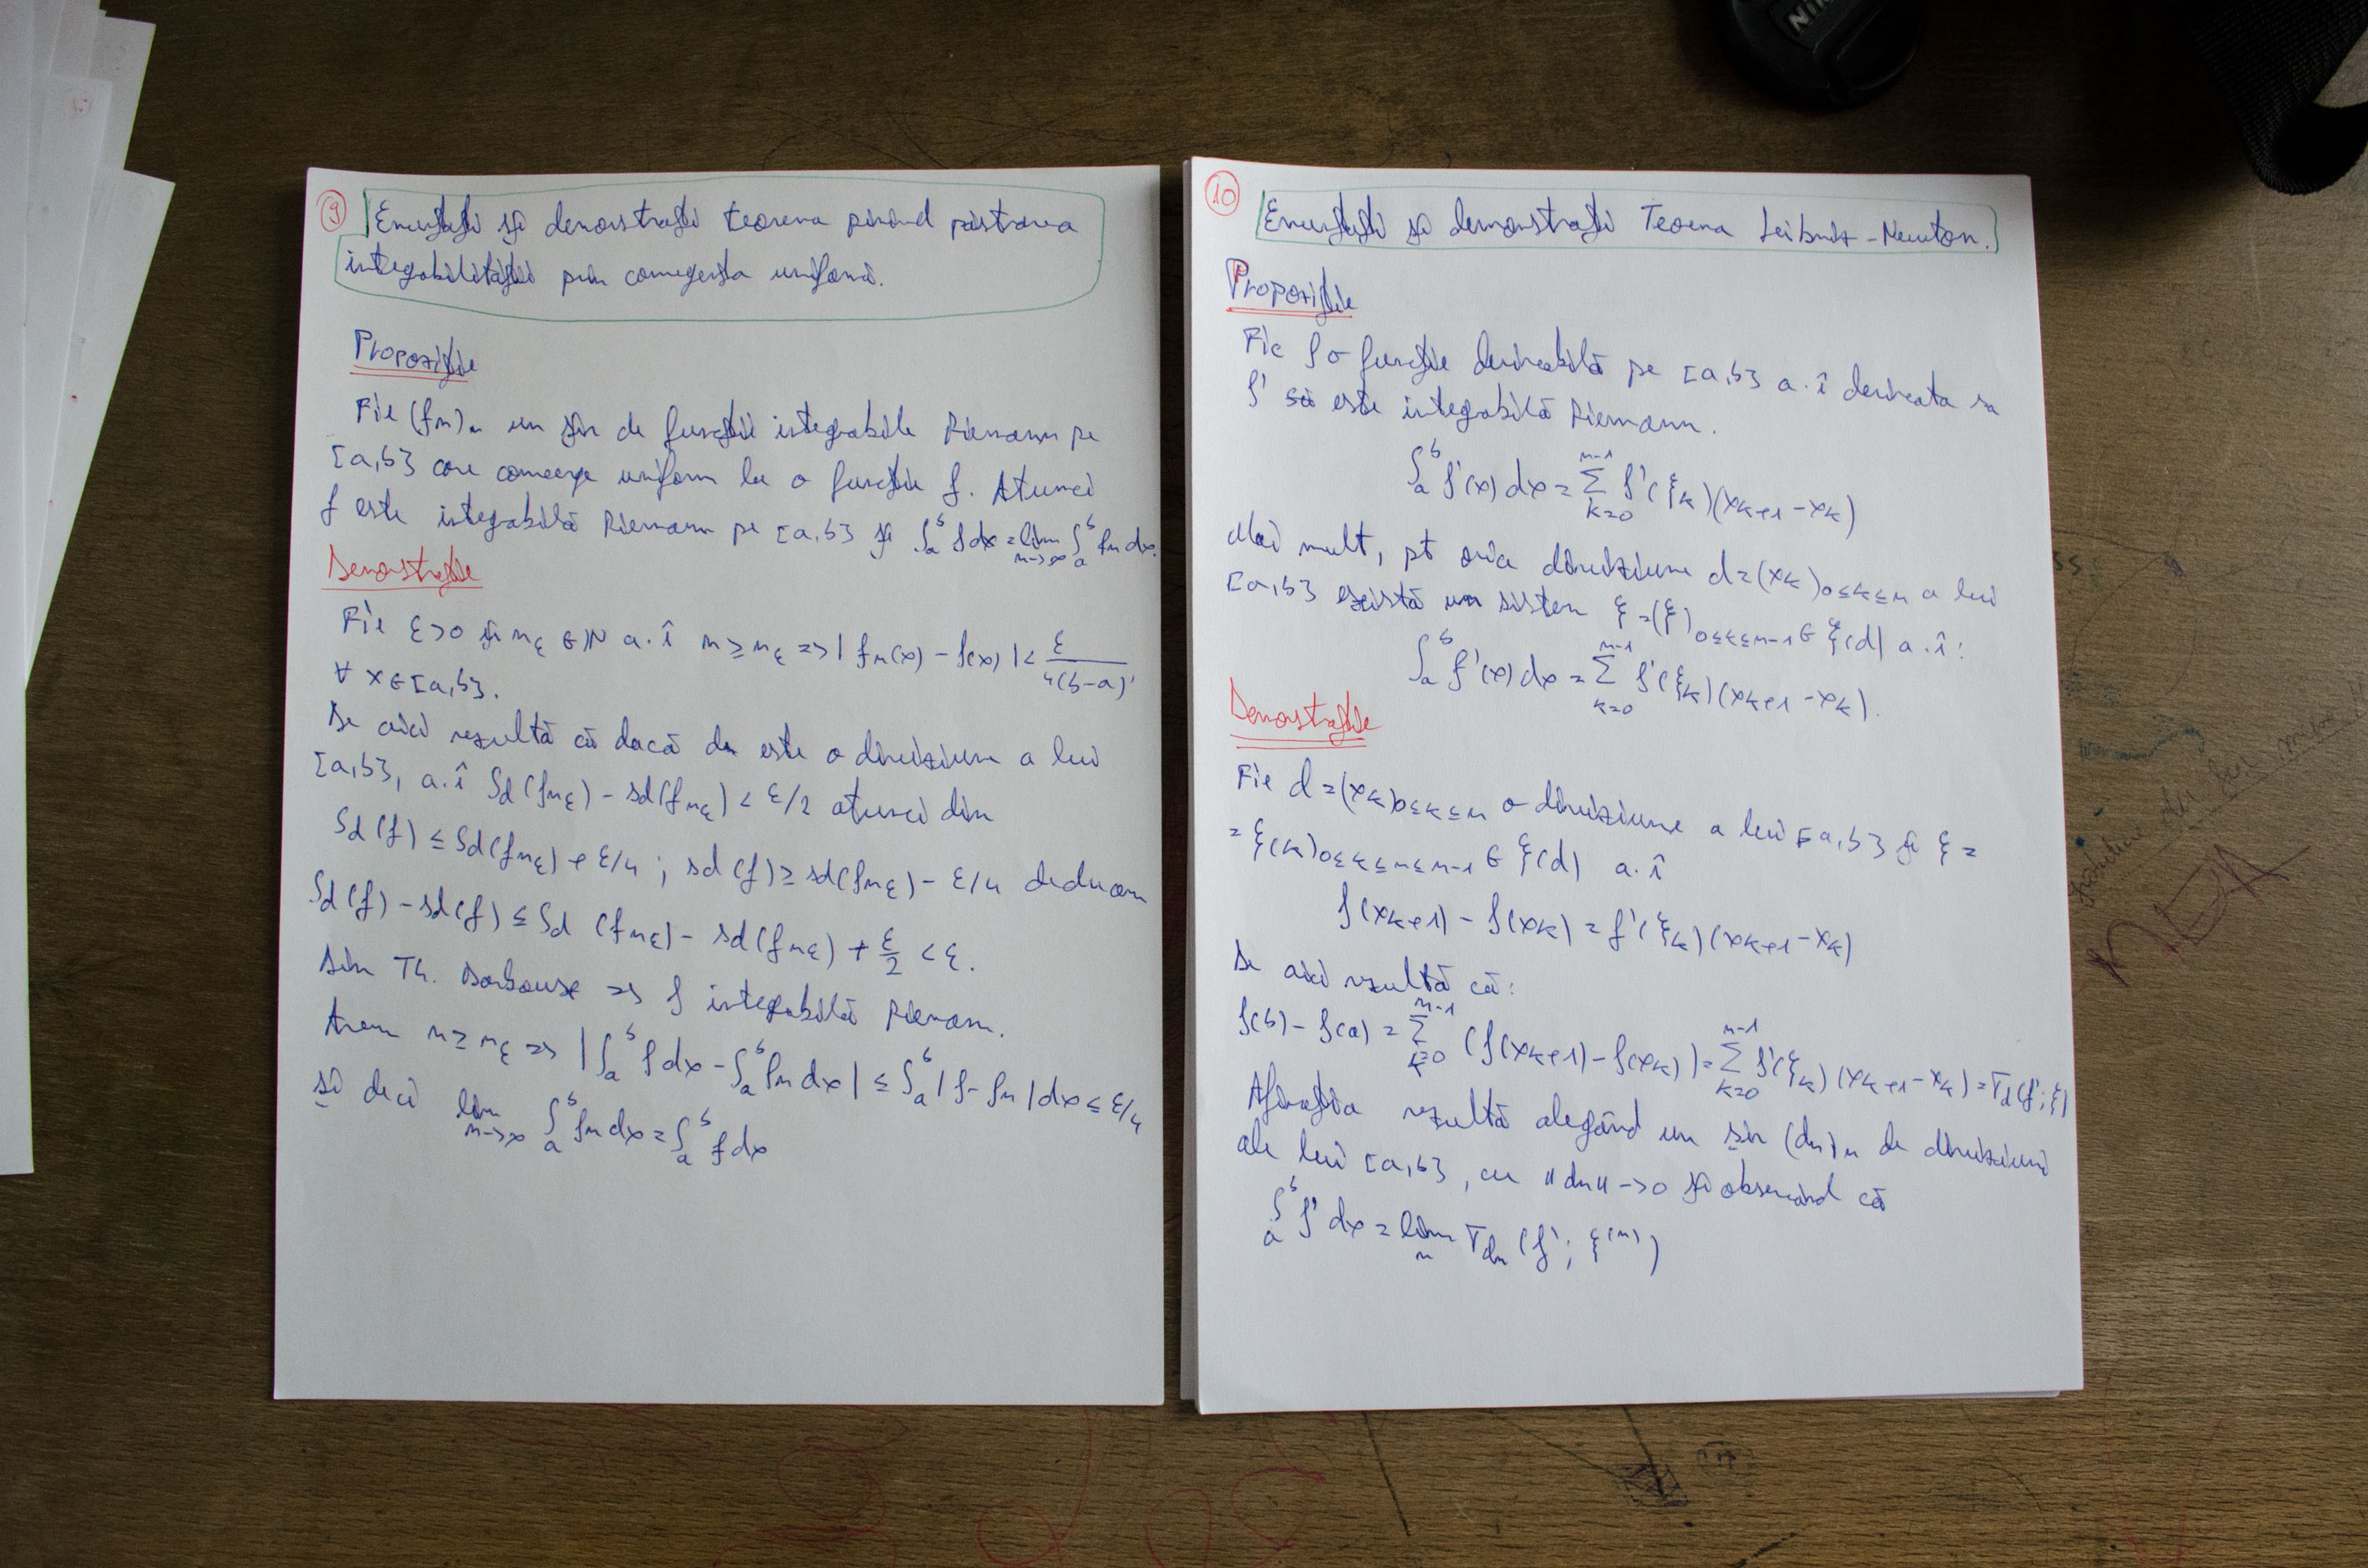 9
Enunțați și demonstrați teorema privind păstrarea
integrabilității prin convergența uniformă.
Propoziție
Fie (fn)n un șir de funcții integrabile Riemann pe
[a,b] care converge uniform la o funcție f. Atunci
f este integrabilă Riemann pe [a,b] și ∫_a^b f dx = lim_{n→∞} ∫_a^b fn dx.
Demonstrație
Fie ε>0 și nε ∈ ℕ a.î n ≥ nε => |fn(x) - f(x)| < ε/4(b-a),
∀ x∈[a,b].
De aici rezultă că dacă dn este o diviziune a lui
[a,b], a.î Sd(fnε) - sd(fnε) < ε/2 atunci din
Sd(f) ≤ Sd(fnε) + ε/4 ; sd(f) ≥ sd(fnε) - ε/4 deducem
Sd(f) - sd(f) ≤ Sd (fnε) - sd(fnε) + ε/2 < ε.
Din Th. Darboux => f integrabilă Riemann.
Avem n ≥ nε => |∫_a^b f dx - ∫_a^b fn dx| ≤ ∫_a^b |f - fn| dx ≤ ε/4
și deci lim_{n→∞} ∫_a^b fn dx = ∫_a^b f dx
10
Enunțați și demonstrați Teorema Leibniz-Newton.
Propoziție
Fie f o funcție derivabilă pe [a,b] a.î derivata sa
f' este integrabilă Riemann.
∫_a^b f'(x) dx = Σ_{k=0}^{n-1} f'(ξk)(xk+1 - xk)
Mai mult, pt orice diviziune d=(xk)0≤k≤n a lui
[a,b] există un sistem ξ=(ξ)0≤k≤n-1 ∈ ξ(d) a.î:
∫_a^b f'(x) dx = Σ_{k=0}^{n-1} f'(ξk)(xk+1 - xk).
Demonstrație
Fie d=(xk)0≤k≤n o diviziune a lui [a,b] și ξ =
= ξ(k)0≤k≤n≤n-1 ∈ ξ(d) a.î
f(xk+1) - f(xk) = f'(ξk)(xk+1 - xk)
De aici rezultă că:
f(b) - f(a) = Σ_{k=0}^{n-1} (f(xk+1) - f(xk)) = Σ_{k=0}^{n-1} f'(ξk)(xk+1 - xk) = Td(f'; ξ)
Afirmația rezultă alegând un șir (dn)n de diviziuni
ale lui [a,b], cu ||dn|| -> 0 și observând că
∫_a^b f' dx = lim_n Tdn (f'; ξ(n))